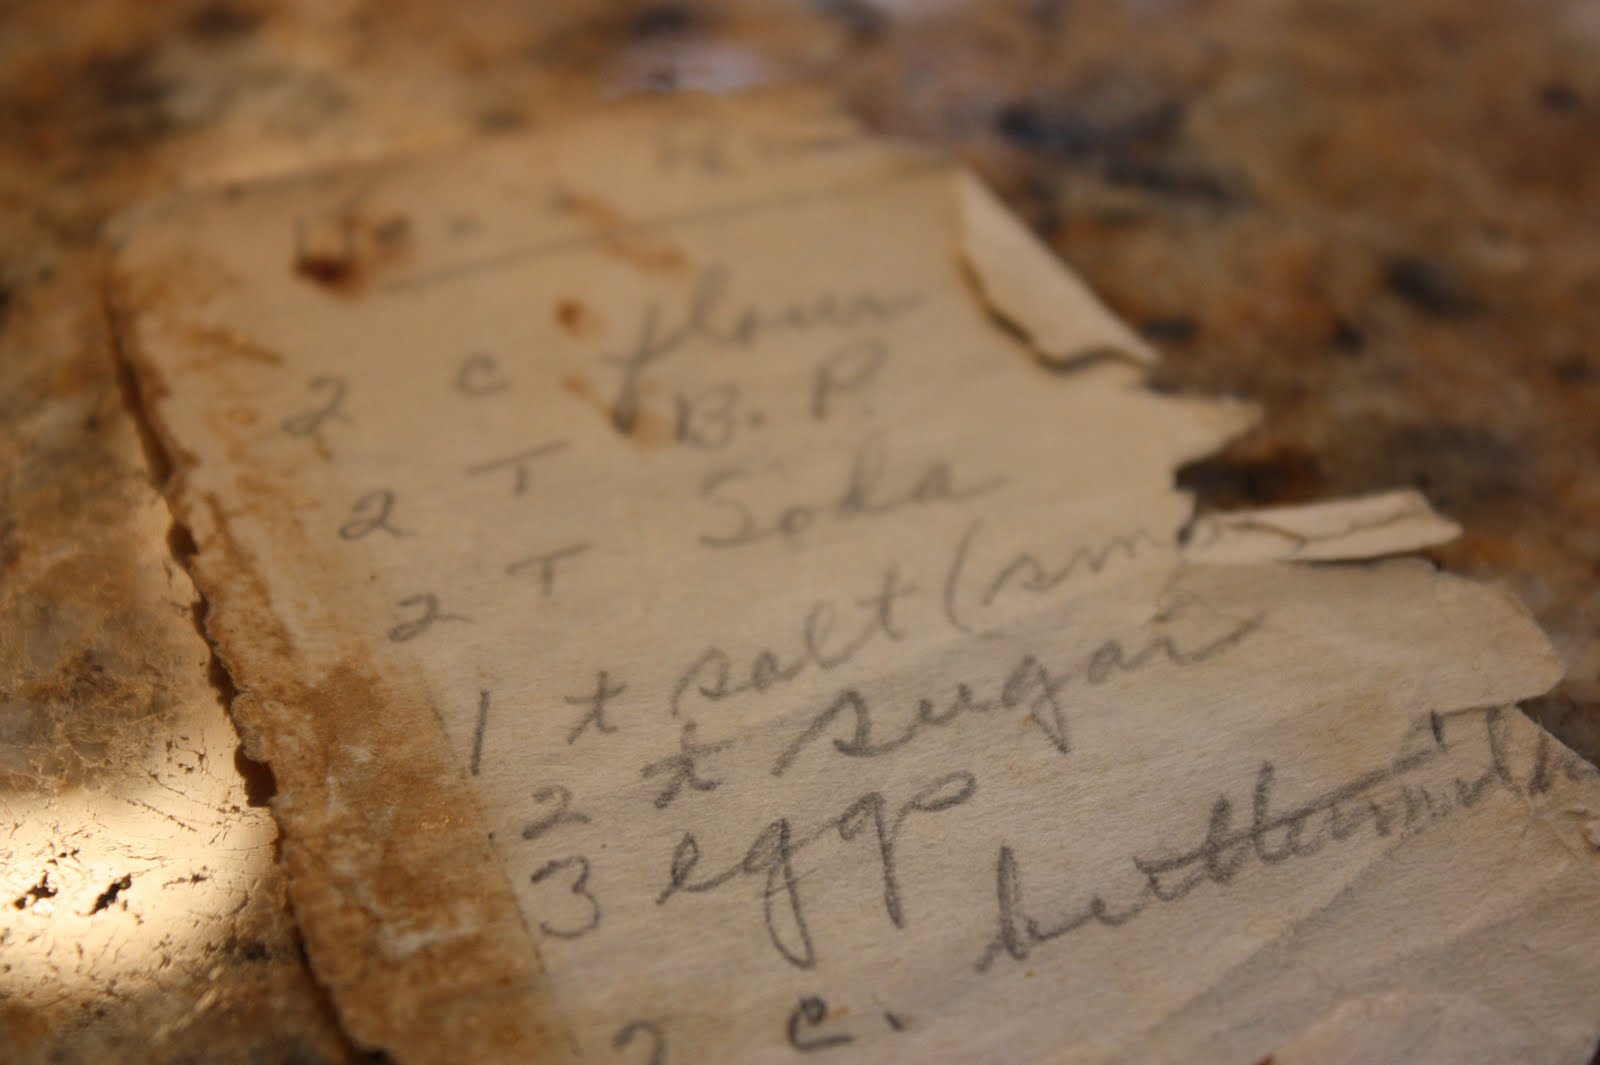 2 c flour
2 T B. P.
2 T Soda
1 t salt (sma
2 t sugar
3 eggs
2 c. buttermilk